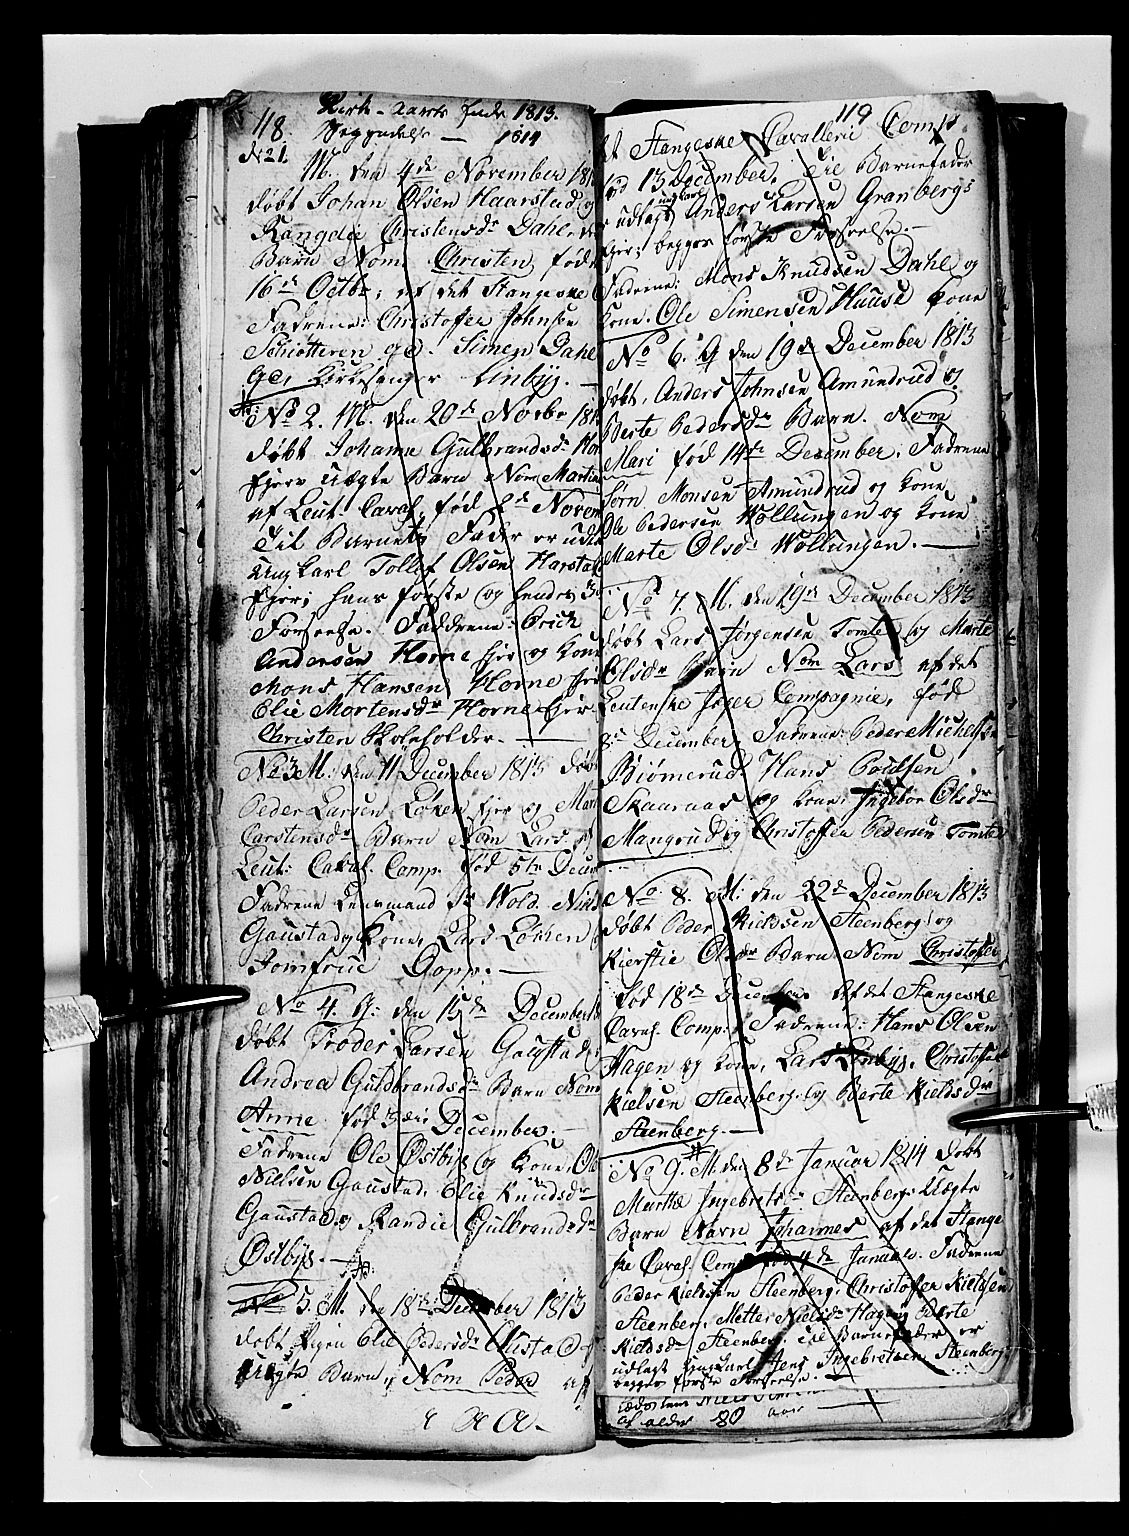 118.
Kirke-Aarets Ende 1813.
Begyndelse — 1814
No 1.
M. den 4de November 181
døbt Johan Olsen Haarstad og
Rangdie Christensdr Dahl,
Barn Nom. Christen, født
16de Octbr; af det Stangeske
Fadrene: Christoffer Johnsen
Schiotteren gC. Simen Dahl
gC, Kirkesanger Linbÿe. —
No 2. M. den 20de Novbr 181
døbt Johanne Gulbrandsdr Hor
Ejers uægte Barn Nom Martin
af Leut. Caval. fød 2de Novem
Til Barnets Fader er udla
Ungkarl Tollef Olsen Harstad
Ejer; hans første og hendes 3
Forseelse. Faddrene: Erick
Andersen Horne Ejer og Kone
Mons Hansen Horne Ejer
Elie Mortensdr Horne Ejer
Christen Skoleholder. —
No 3 M: den 11 December 1813 døbt
Peder Larsen Løken Ejer og Mart
Carstensdr Barn Nom Lars. af
Leut: Caval. Comp. fød 5te Decem
Fadrene Lensmand Wold. Niels
Gaustad og Kone, Lars Løken
Jomfrue Dopp. —
No 4. P: den 15de December 18
døbt Troder Larsen Gaustad og
Andrea Guldbrandsdr Barn Nom
Anne fød 3de December.
Fadrene Ole Østbÿe og Kone, Ole
Nielsen Gaustad, Elie Knudsdr
Gaustad og Randie Gulbrandsdr
Østbÿe. —
No 5 M. den 18de December 1813
døbt Pigen Elie Pedersdr Ullstad
uægte Barn, Nom Peder af
119
det Stangeske Cavallerie Comp:
fød 13 December. Til Barnefader
er udlagt ungkarl Anders Larsen Granbergs
Ejer; begges første Forseelse. —
Fadrene: Mons Knudsen Dahl og
Kone. Ole Simensen Huuse Kone
No 6. P den 19de December 1813
døbt, Anders Johnsen Amundrud og
Berte Pedersdr Barn. Nom
Mari fød 14de December. Fadrene
Sørn Monsen Amundrud og Kone
Ole Pedersen Wollungen og Kone
Marte Olsdr Wollungen. —
No 7. M. den 19de December 1813
døbt Lars Jørgensen Tomte og Marte
Olsdr Barn Nom Lars af det
Leutenske Jæger Compagnie, Fødd
8de December. Fadrene: Peder Michelsen
Biømerud Hans Poulsen
Skaaraas og Kone: Ingebor Olsdr
Mangrud og Christoffer Pedersen Tomte
No 8. M: den 22de December 1813
døbt Peder Kieldsen Steenberg og
Kierstie Olsdr Barn Nom Christoffer
fød 18de December Af det Stangeske
Caval. Comp: Fadrene: Hans Olsen
Hagen og Kone, Lars Linbÿe, Christoffer
Kielsen Steenberg og Berte Kieldsdr
Steenberg. —
No 9. M. den 8de Januar 1814 døbt
Marthe Ingebretsdr Steenbergs Uægte
Barn Navn Johannes af det Stange
ske Caval. Comp fød 4de Januar. Fadrene
Peder Kieldsen Steenberg, Christoffer Kieldsen
Steenber, Mette Nielsdr Hagen Berte
Kieldsdr Steenberg. Til Barnefader er
udlagt Ungkarl Jens Ingebretsen, Steenberg
begges første Forseelse.
af alder 80 aar —